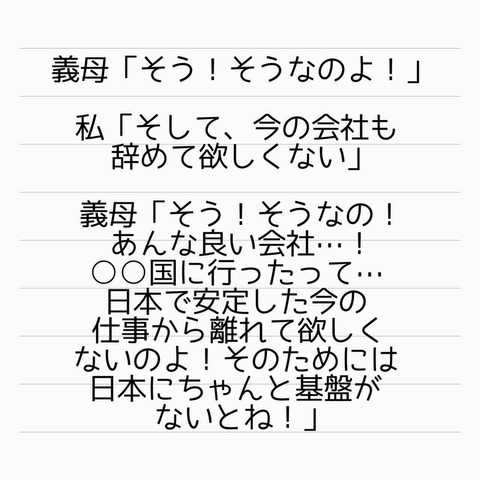 義母「そう！そうなのよ！」
私「そして、今の会社も
辞めて欲しくない」
義母「そう！そうなの！
あんな良い会社…！
○○国に行ったって…
日本で安定した今の
仕事から離れて欲しく
ないのよ！そのためには
日本にちゃんと基盤が
ないとね！」